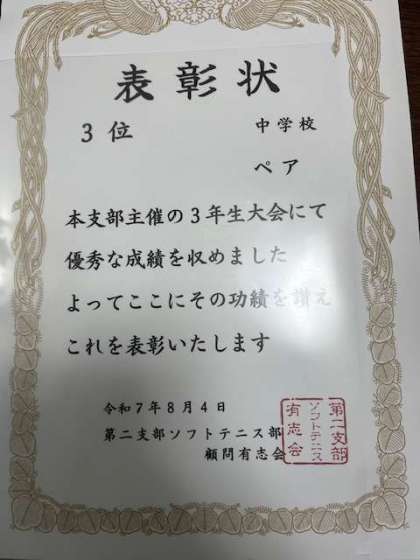 表彰状
3位
中学校
ペア
本支部主催の3年生大会にて
優秀な成績を収めました
よってここにその功績を讃え
これを表彰いたします
令和7年8月4日
第二支部ソフトテニス部
顧問有志会
第二支部
ソフトテニス
有志会